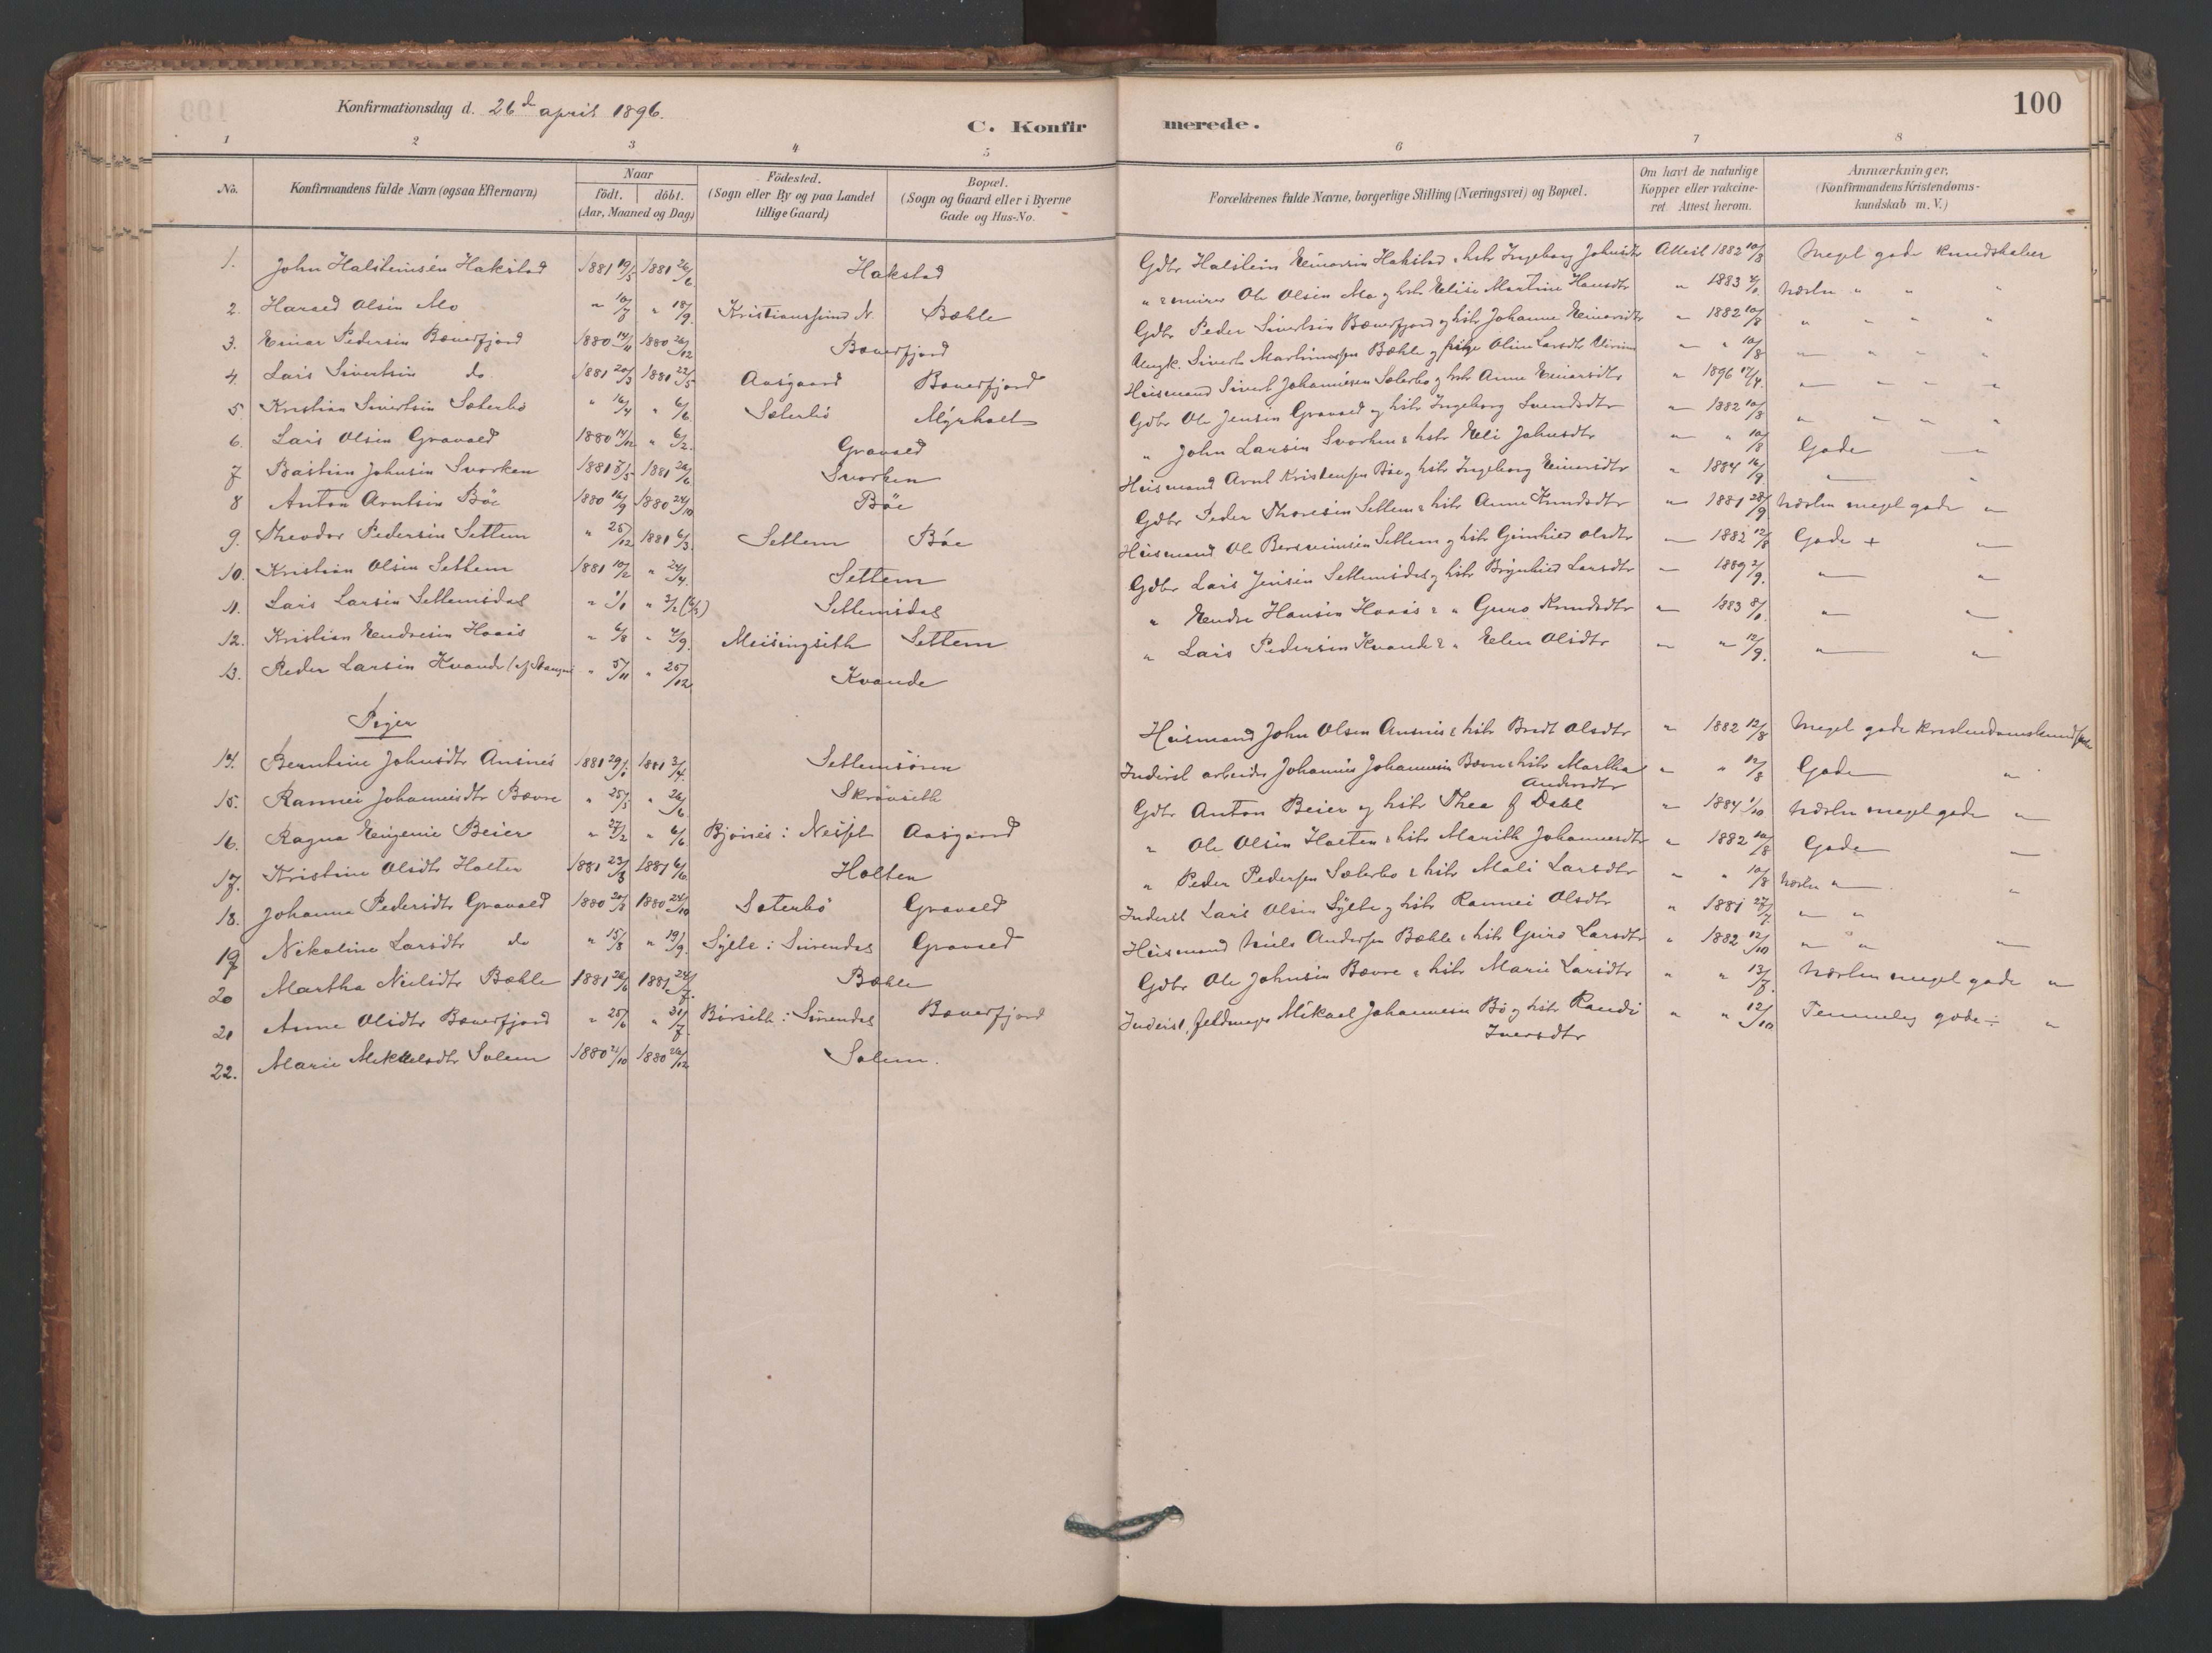 Konfirmationsdag d. 26de april 1896.
C. Konfirmerede.
100
1 2 3 4 5 6 7 8
No. Konfirmandens fulde Navn (ogsaa Efternavn) Naar födt. döbt. (Aar, Maaned og Dag) Födested. (Sogn eller By og paa Landet tillige Gaard) Bopæl. (Sogn og Gaard eller i Byerne Gade og Hus-No. Forældrenes fulde Navne, borgerlige Stilling (Næringsvei) og Bopæl. Om havt de naturlige Kopper eller vakcineret Attest herom. Anmærkninger, (Konfirmandens Kristendomskundskab m. V.)
1. John Halsteinsen Hakstad 1881 19/5 1881 26/6 Hakstad Gdbr Halstein Einarsen Hakstad & hstr Ingeborg Johnsdtr Attest 1882 10/8 Meget gode kundskaber
2. Harald Olsen Mo " 10/8 " 18/9 Kristianssund N. Bæhle " Ole Olsen Mo og hstr Elise Martine Hansdtr " 1883 Næsten " " "
3. Einar Pedersen Bæverfjord 1880 14/11 1880 26/12 Bæverfjord Gdbr Peder Sivertsen Bæverfjord og hstr Johanne Einarsdtr " 1882 10/8 " " " "
4. Lars Sivertsen do 1881 20/3 1881 22/5 Aasgaard Bæverfjord Ungk. Sivert Martinussen Bæhle og pige Oline Larsdtr " " 10/8 " " " "
5. Kristian Sivertsen Sæterbö " 16/4 " 6/6 Sæterbö Myrholt Huusmand Sivert Johannesen Sæterbö og hstr Anne Einarsdtr " 1896 17/4. " " " "
6. Lars Olsen Gravald 1880 14/12 " 6/2. Gravald Gdbr Ole Jensen Gravald og hstr Ingeborg Svendsdtr " 1882 10/8 " " " "
7 Bastian Johnsen Svorken 1881 8/5 1881 26/6 Svorken " John Larsen Svorken & hstr Eli Johnsdtr " " 10/8 Gode "
8 Anton Arntsen Böe 1880 16/9 1880 24/10 Böe Huusmand Arnt Kristensen Böe og hstr Ingeborg Einarsdtr " 1884 16/9 " "
9. Theodor Pedersen Settem " 25/12 1881 6/3. Settem Böe Gdbr Peder Thoresen Settem & hstr Anne Knudsdtr " 1881 28/9 Næsten meget gode "
10. Kristian Olsen Settem 1881 10/2 " 24/4. Settem Huusmand Ole Settem og hstr Gunhild Olsdtr " 1882 12/8 Gode + "
11. Lars Larsen Settemsdal " 1/1 " 2/2 (6/3) Settemsdal Gdbr Lars Jensen Settemsdal og hstr Brynhild Larsdtr " 1889 2/9. " "
12. Kristian Endresen Hoaas " 6/8 " 4/9. Meisingseth Settem " Endre Hansen Hoaas & " Guro Knudsdtr " 1883 " "
13. Peder Larsen Kvande " 5/11 " 25/12 Kvande " Lars Pedersen Kvande & " Elen Olsdtr " " 12/9. " "
Piger
14. Berntine Johnsdtr Ansnes 1881 29/1 1881 3/4. Settemsören Huusmand John Olsen Ansnes & hstr Beret Olsdtr " 1882 12/8 Meget gode kristendomskundskaber
15. Rannei Johannesdtr Bævre " 25/5 " 26/6 Skravseth Inderst arbeider Johannes Johannesen Bævre & hstr Martha Andersdtr " " 12/8 Gode "
16. Ragna Eugenie Beier " 27/2 " 6/6 Bjönes i Nesset Aasgaard Gdbr Anton Beier og hstr Thea f Dahl " 1884 1/10 Næsten meget gode "
17. Kristine Olsdtr Holten 1881 23/3 1881 6/6. Holten " Ole Olsen Holten & hstr Marith Johannesdtr " 1882 10/8 Gode "
18. Johanna Pedersdtr Gravald 1880 20/8 1880 24/10 Sæterbö Gravald " Peder Pedersen Sæterbö & hstr Mali Larsdtr " " 10/8 Næsten " "
19 Nikoline Larsdtr do " 15/8 " 19/9. Sylte i Surendal Gravald Inderst Lars Olsen Sylte og hstr Rannei Olsdtr " 1881 27/7 " "
20 Martha Nielsdtr Bæhle 1881 26/6 1881 24/7. Bæhle Huusmand Niels Andersen Bæhle & hstr Guro Larsdtr " 1882 12/10 " " "
21 Anne Olsdtr Bæverfjord " 25/6 " 31/7. Börseth i Surendal Bæverfjord Gdbr Ole Johnsen Bævre & hstr Marie Larsdtr " " 13/8. Næsten meget gode "
22. Marie Mikkelsdtr Solem 1880 21/10 1880 26/12 Solem. Inderst, Mikael Johannesen Bö og hstr Randi Iversdtr " " 12/10 Temmelig gode ÷ "